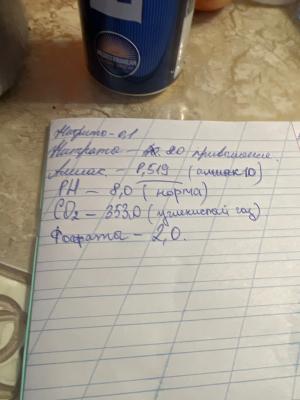 Нитриты - 0,1
Нитраты - 80 превышение
Аммиак. - 8,519 (аммиак 10)
PH - 8,0 (норма)
CO₂ - 353,0 (углекислый газ)
Фосфаты - 2,0.